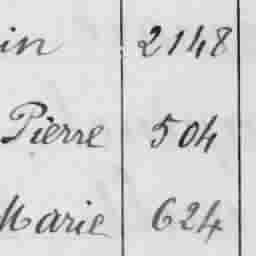 in 2148
Pierre 504
Marie 624